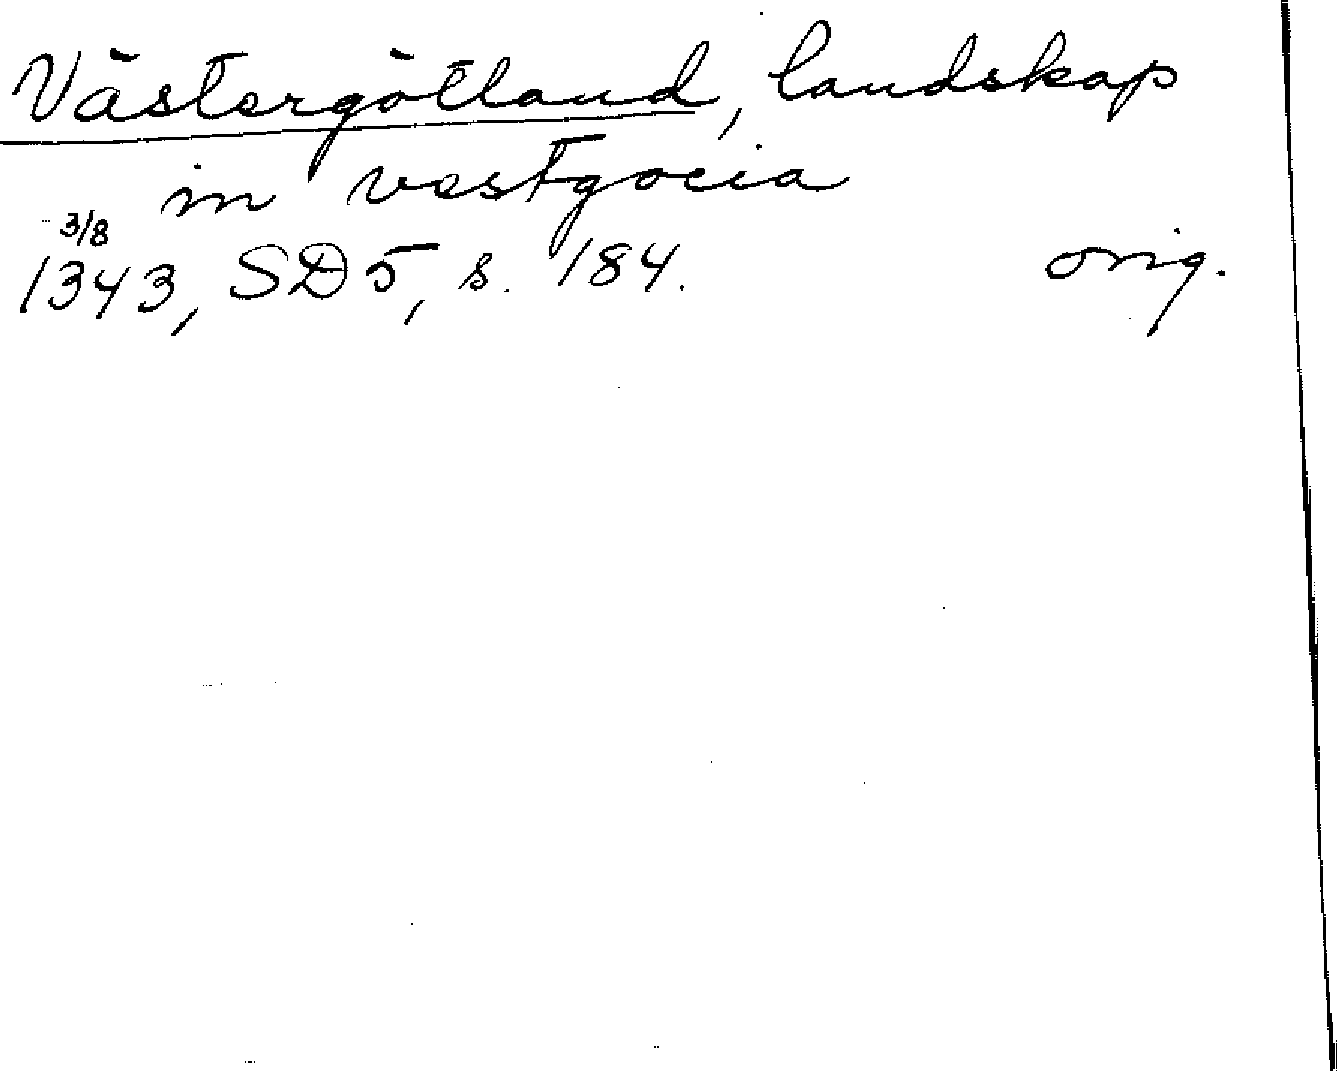 Västergötland, landskap
in vestgocia
3/8
1343, SD5, s. 184. orig.